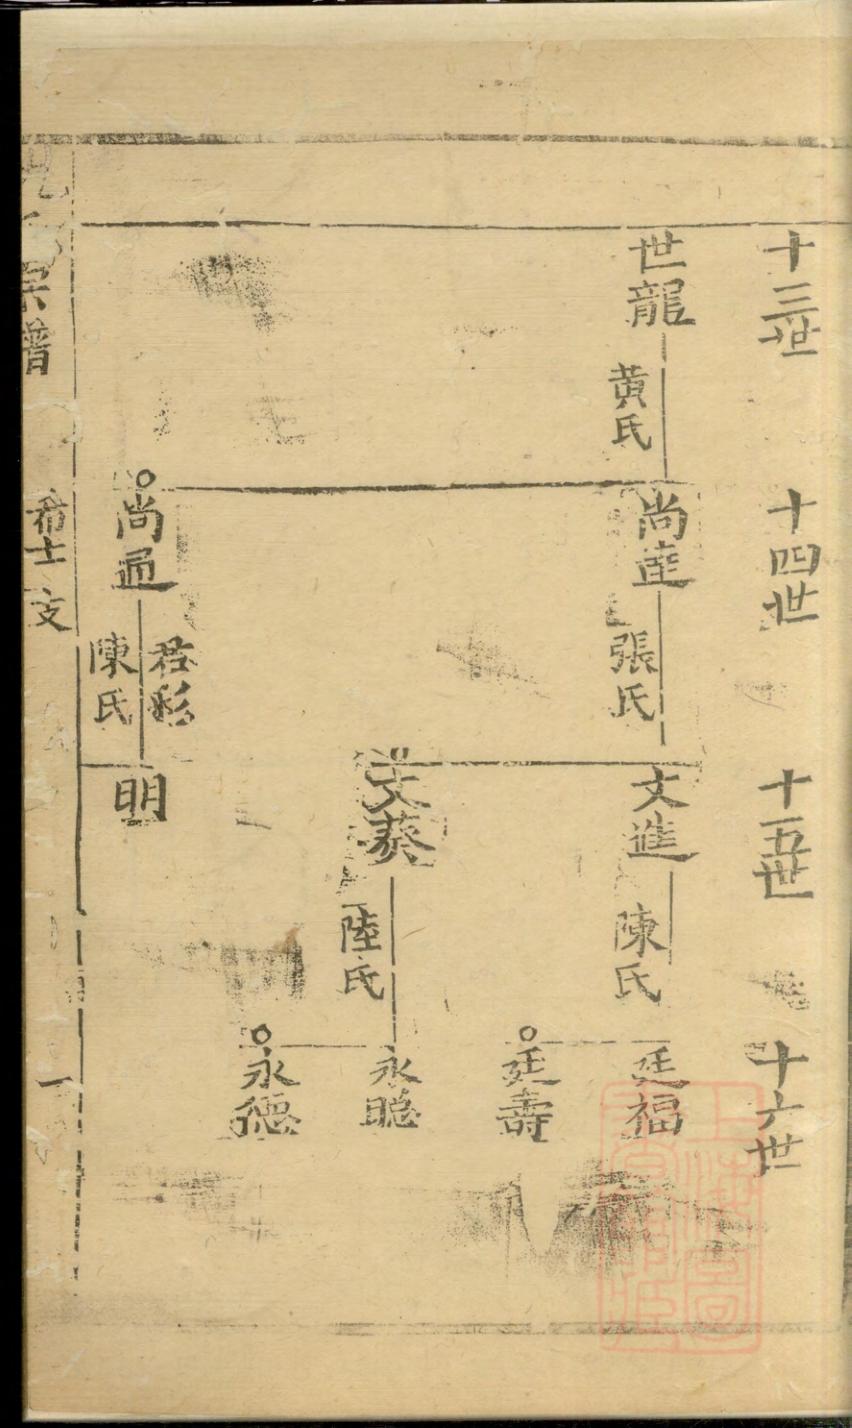 十三世
十四世
十五世
十六世
世龍
黄氏
尚達
張氏
文進
陳氏
廷福
廷壽
文葵
陸氏
永聰
永德
尚通
君彩
陳氏
明
宗譜
希士支
一